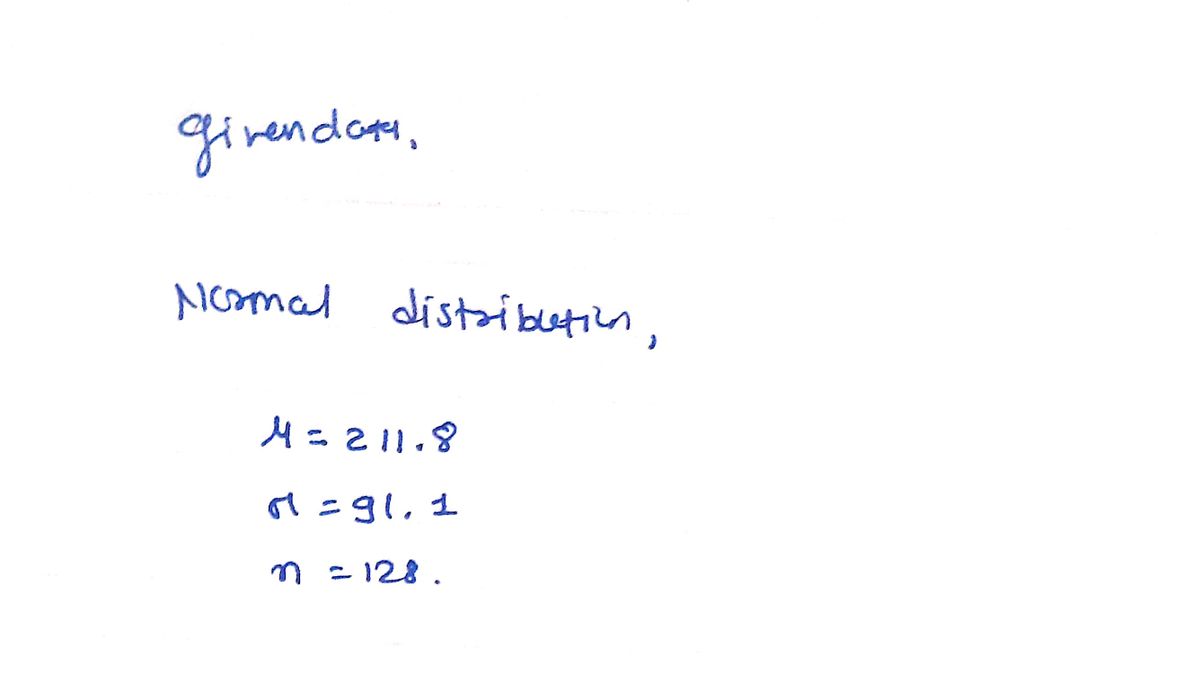 given data,
Normal distribution,
μ = 211.8
σ = 91.1
n = 128.